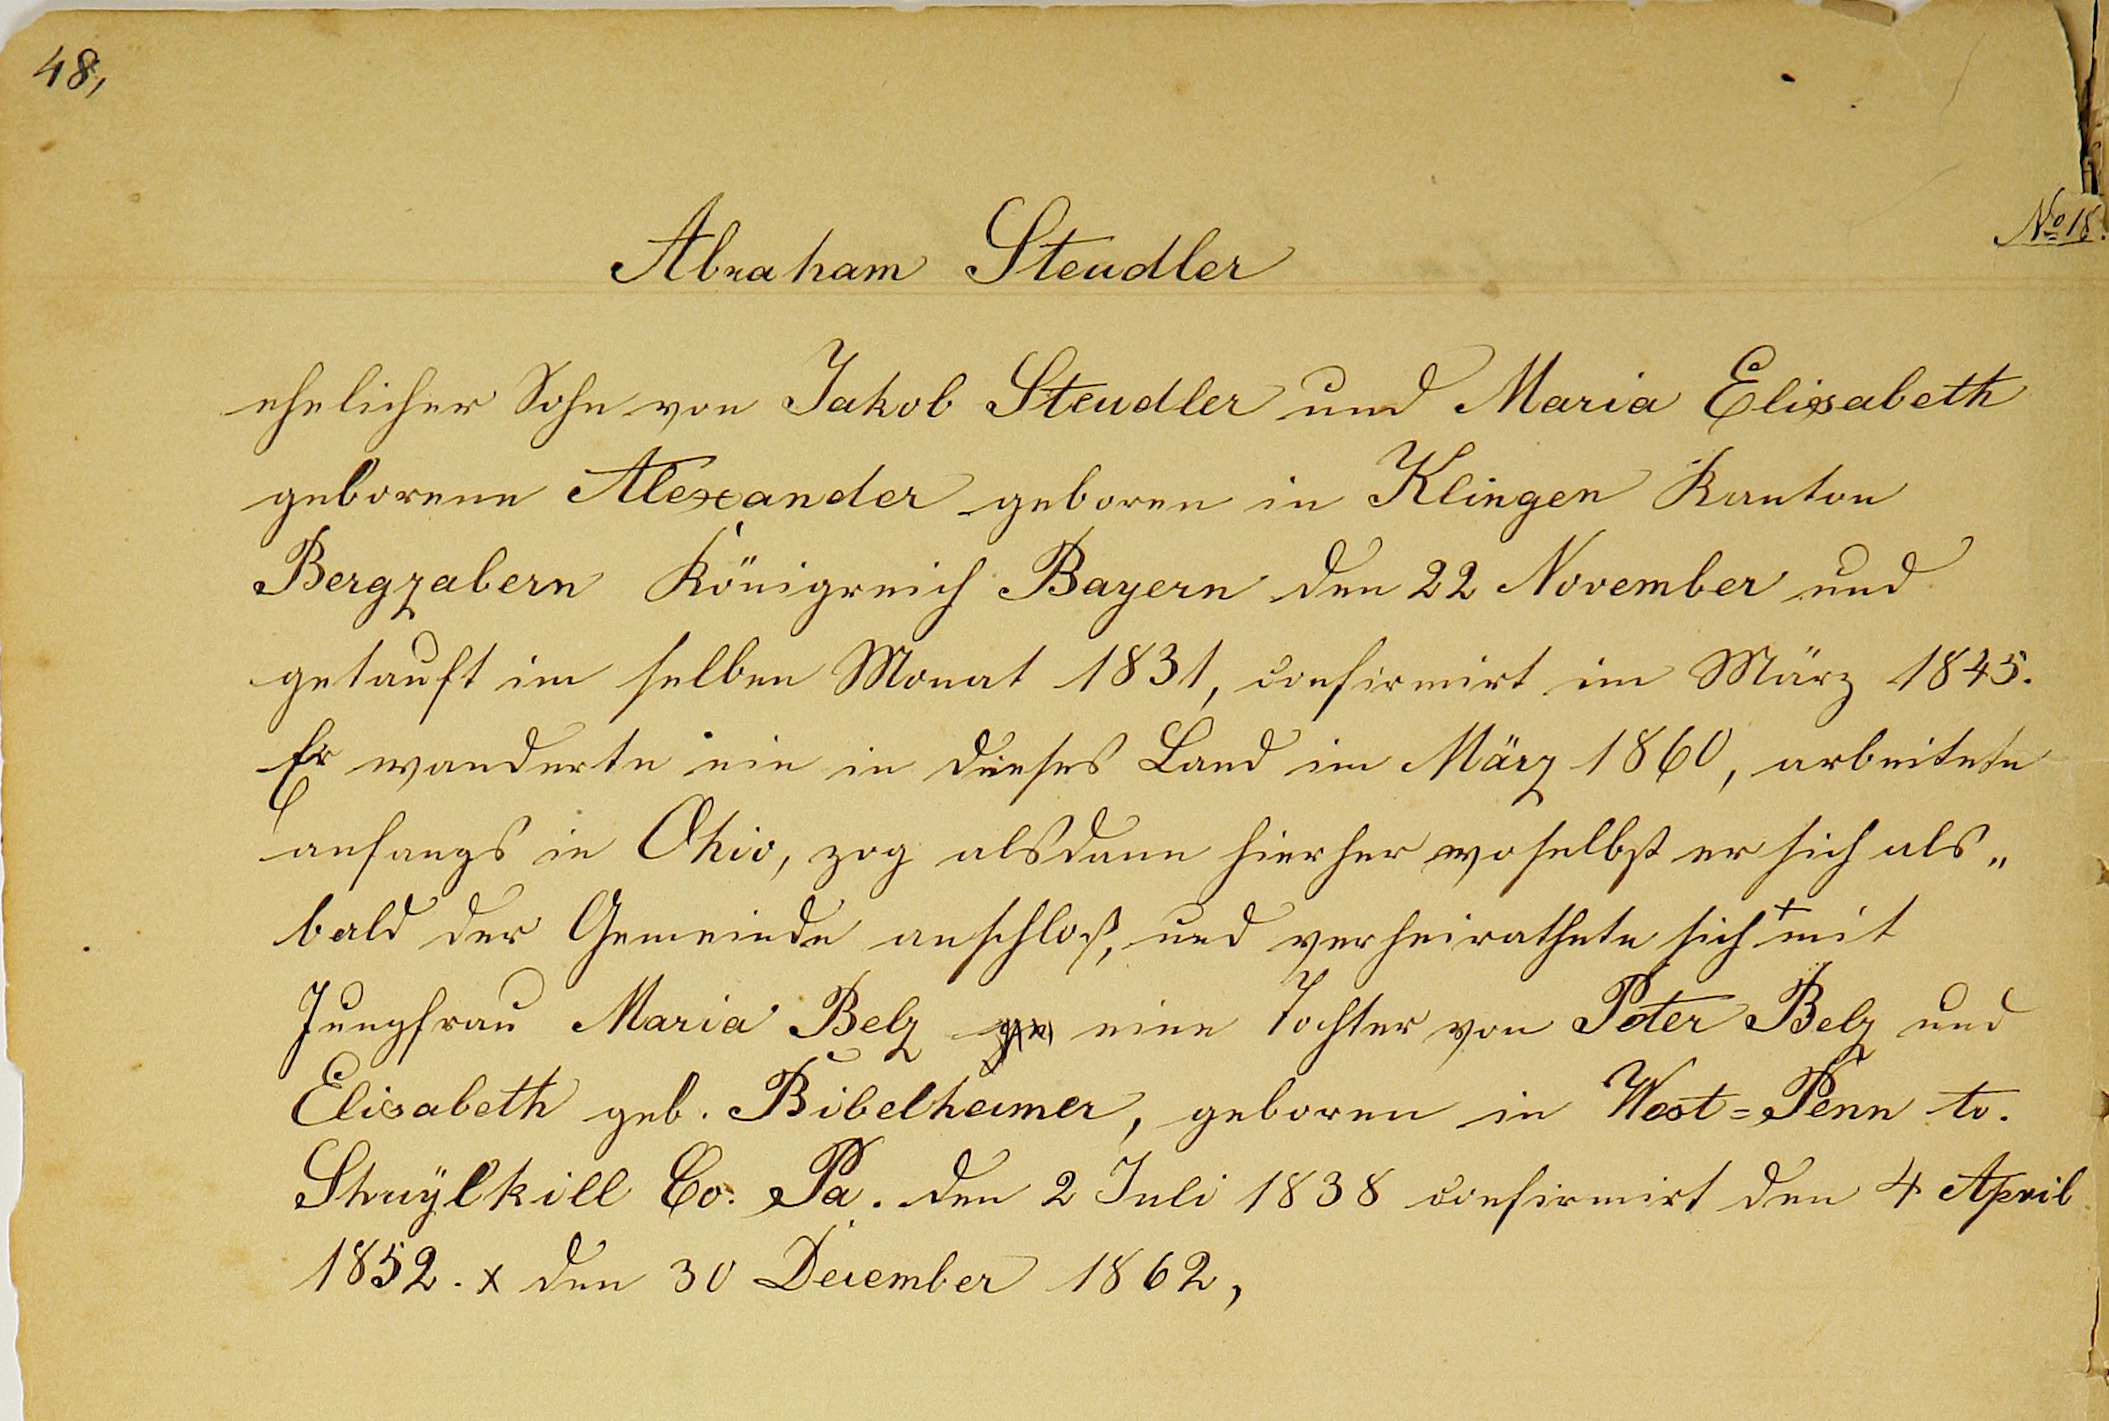 48,
No 18.
Abraham Steudler
ehelicher Sohn von Jakob Steudler und Maria Elisabeth
geborene Alexander geboren in Klingen Kanton
Bergzabern Königreich Bayern den 22 November und
getauft im selben Monat 1831, confirmirt im März 1845.
Er wanderte ein in dieses Land im März 1860, arbeitete
anfangs in Ohio, zog alsdann hierher woselbst er sich als„
bald der Gemeinde anschloß, und verheirathete sich + mit
Jungfrau Maria Belz eine Tochter von Peter Belz und
Elisabeth geb. Bibelheimer, geboren in West=Penn to.
Shuÿlkill Co. Pa. den 2 Juli 1838 confirmirt den 4 April
1852. x den 30 December 1862,